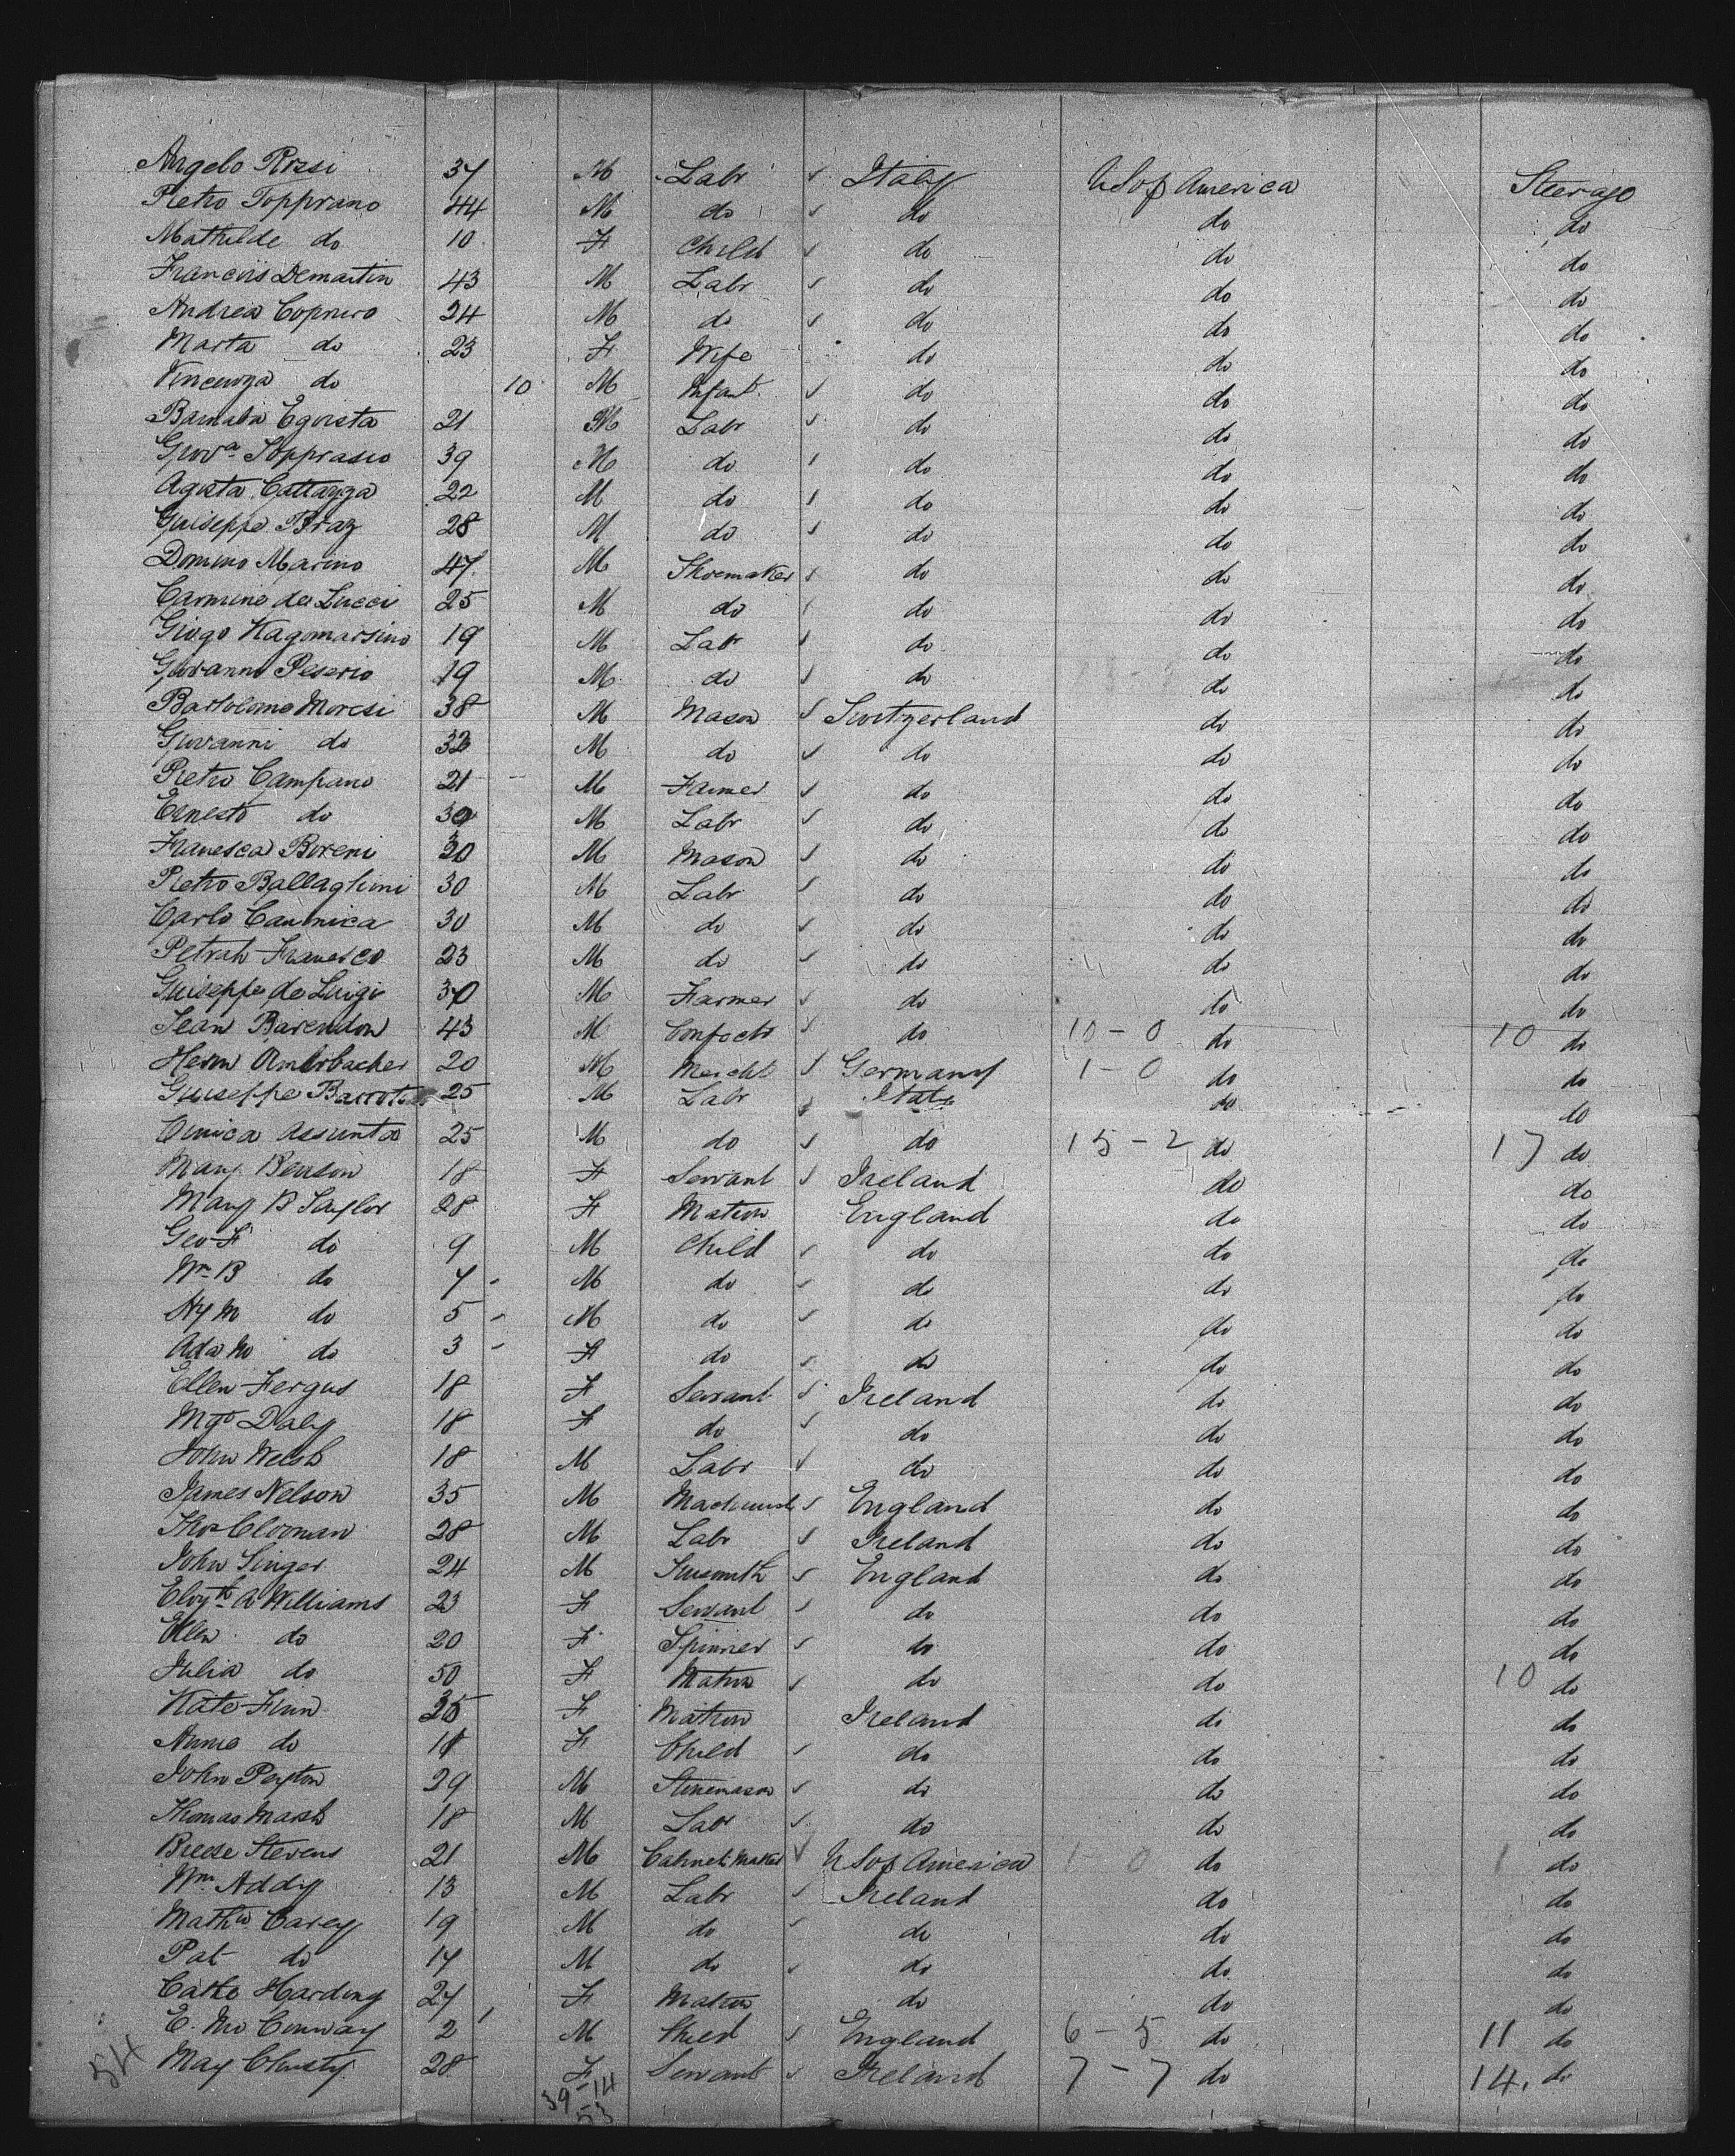 Angelo Rossi 37 M Labr Italy U S of America Steerage
Pietro Topprano 44 M do do do do
Mathilde do 10 F Child do do do
Francris Demartin 43 M Labr do do do
Andrea Copnero 24 M do do do do
Marta do 23 F Wife do do do
Vincenza do 10 M Infant do do do
Barnaba Egoista 21 M Labr do do do
Giova Sopprasio 39 M do do do do
Agosta Cattazza 22 M do do do do
Guiseppe Braz 28 M do do do do
Domino Marino 47 M Shoemaker do do do
Carmine de Lucci 25 M do do do do
Giogo Kagomarsino 19 M Labr do do do
Giovanni Peserio 19 M do do do do
Bartolomo Moresi 38 M Mason Switzerland do do
Giovanni do 32 M do do do do
Pietro Campano 21 M Farmer do do do
Ernesto do 39 M Labr do do do
Franesca Boreni 30 M Mason do do do
Pietro Ballaghini 30 M Labr do do do
Carlo Caunica 30 M do do do do
Petrah Franesco 23 M do do do do
Guiseppe de Luigi 30 M Farmer do do do
Jean Barendon 43 M Confectr do 10-0 do 10 do
Herm Amerbacher 20 M Mercht Germany 1-0 do do
Guiseppe Barrot 25 M Labr Italy do do
Omica Assunta 25 M do do 15-2 do 17 do
Mary Benson 18 F Servant Ireland do do
Mary B Taylor 28 F Matron England do do
Geo F do 9 M Child do do do
Wm B do 7 M do do do do
Hy M do 5 M do do do do
Ada M do 3 F do do do do
Ellen Fergus 18 F Servant Ireland do do
Mgt Daly 18 F do do do do
John Welsh 18 M Labr do do do
James Nelson 35 M Machinist England do do
Thos Cloonan 28 M Labr Ireland do do
John Singer 24 M Tinsmith England do do
Elizth A Williams 23 F Servant do do do
Ellen do 20 F Spinner do do do
Julia do 50 F Matron do do 10 do
Kate Finn 35 F Matron Ireland do do
Annie do 11 F Child do do do
John Peyton 29 M Stonemason do do do
Thomas Marsh 18 M Labr do do do
Breese Stevens 21 M Cabinet Maker U S of America 1 0 do 1 do
Wm Addy 13 M Labr Ireland do do
Mathw Carey 19 M do do do do
Pat do 17 M do do do do
Cathe Harding 27 F Matron do do do
E. Mc Conway 2 M Child England 6-5 do 11 do
May Christy 28 F Servant Ireland 7-7 do 14 do
54 39-14
53